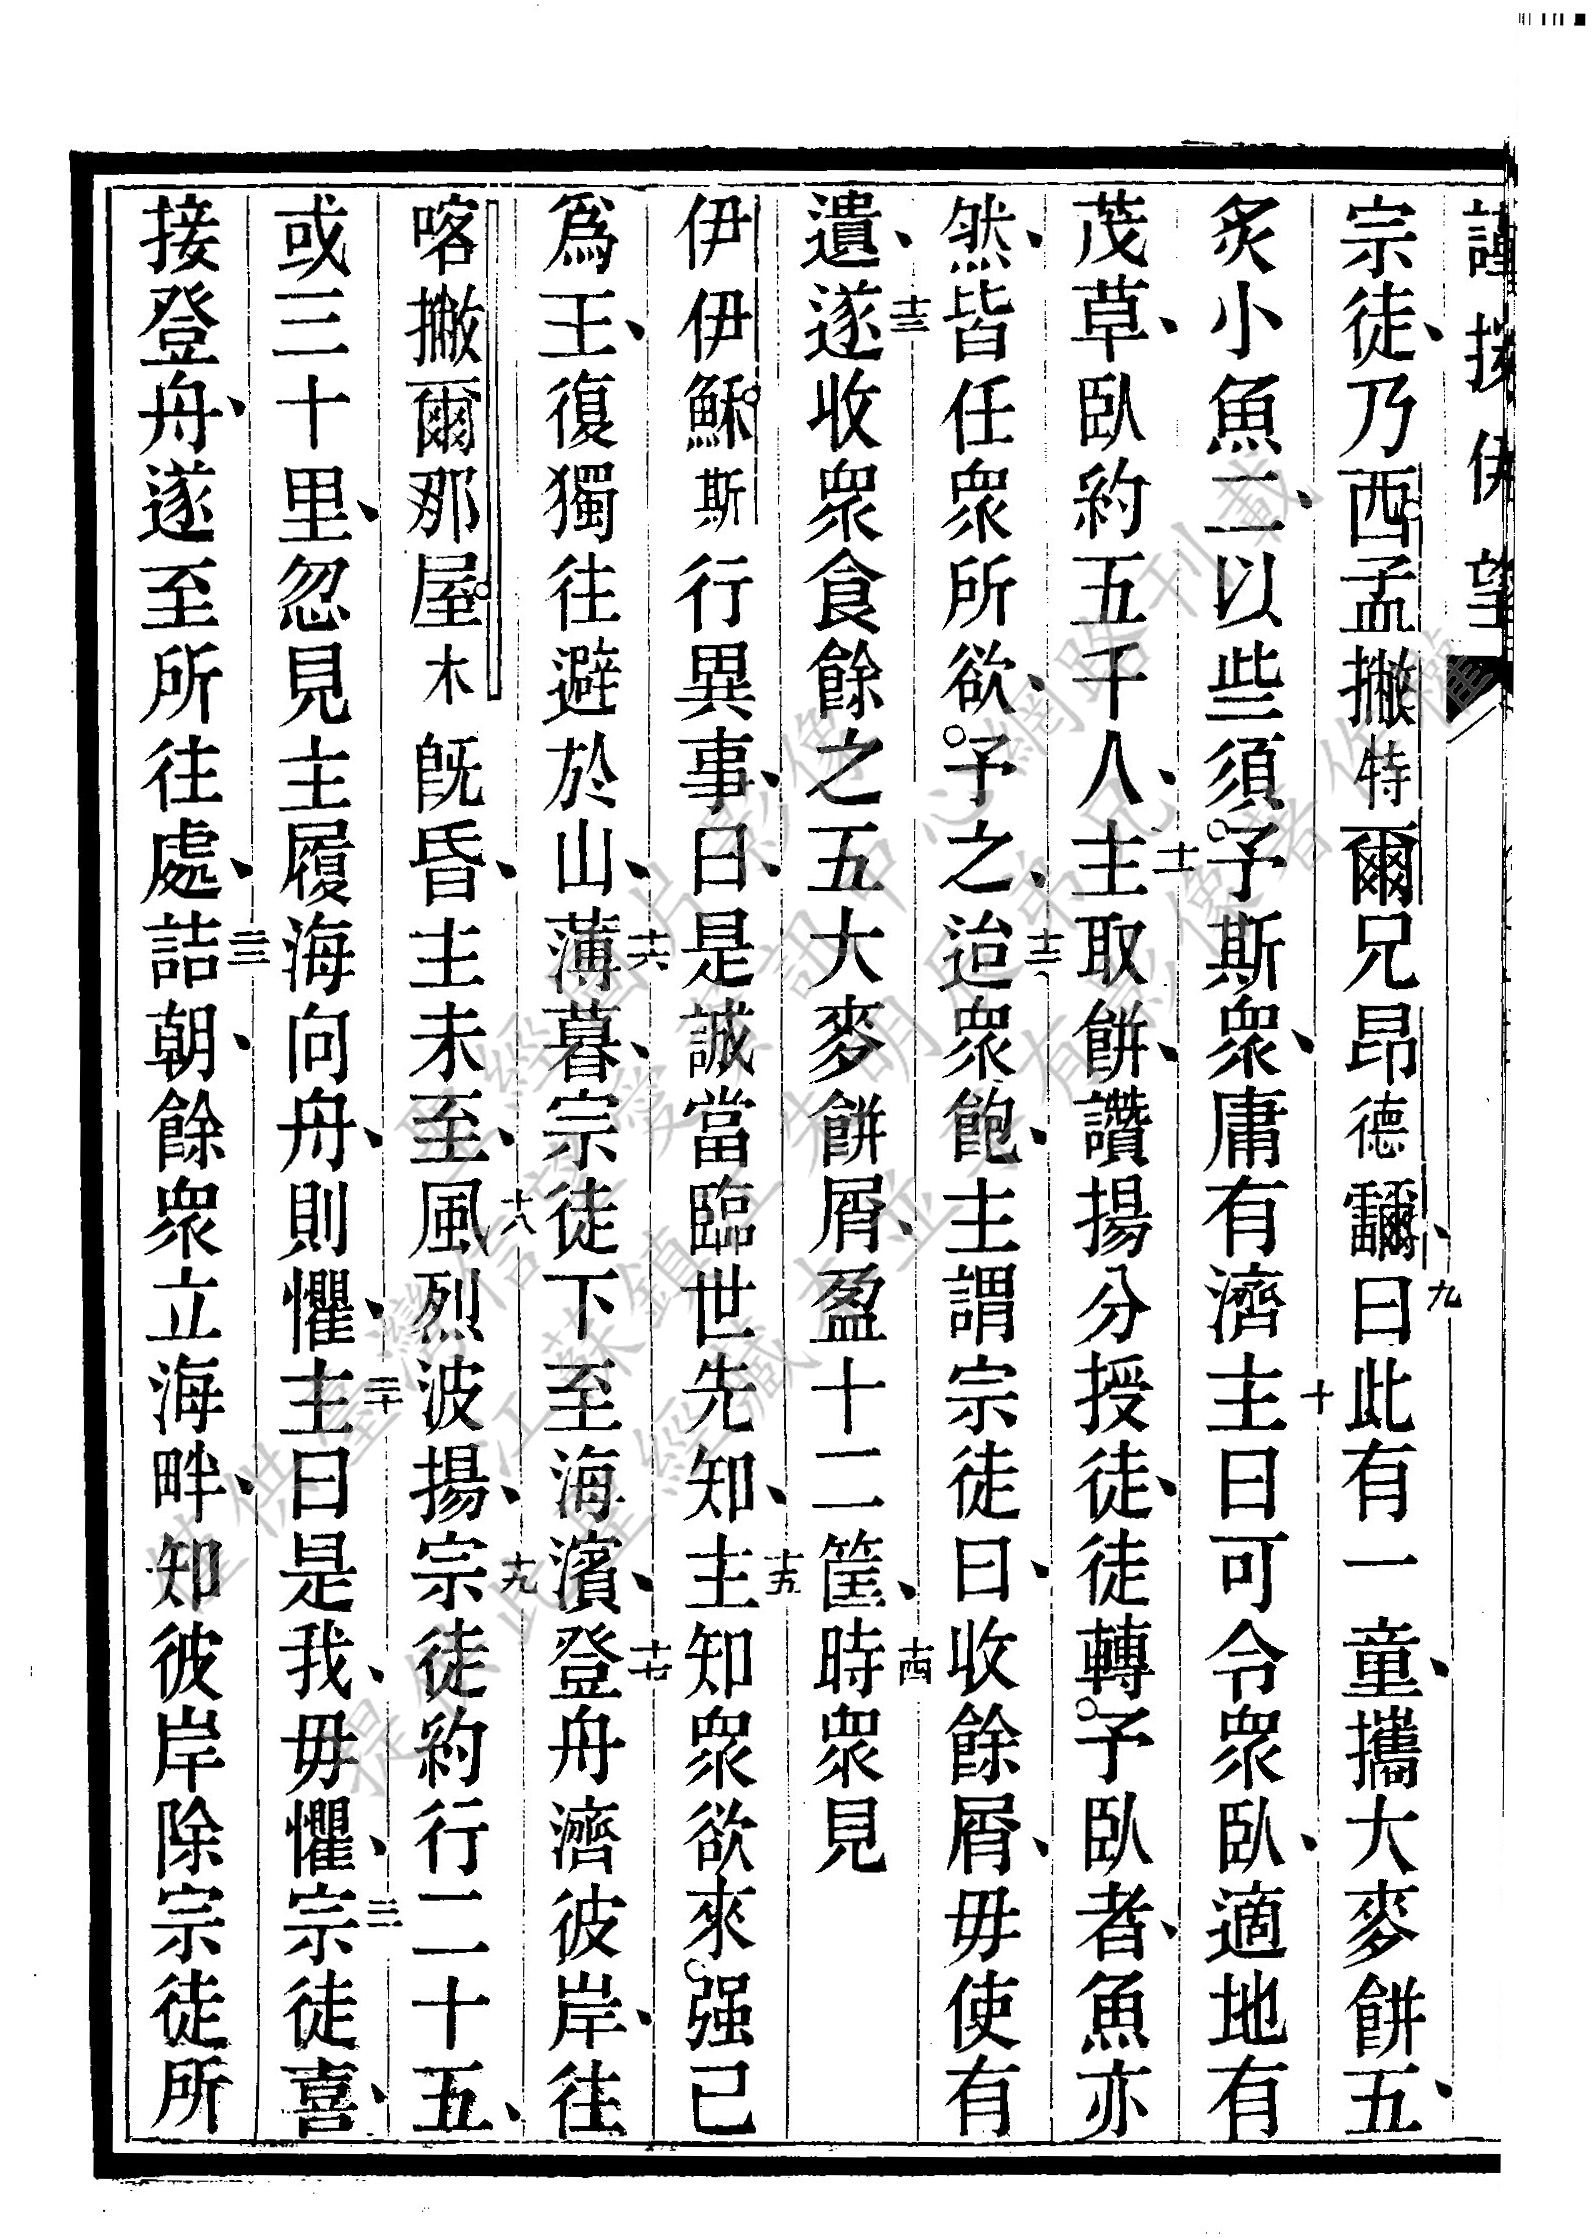 宗徒、乃西孟撇特爾兄昂德𩆜、九曰此有一童、攜大麥餅五、
炙小魚二、以些須予斯衆、庸有濟十主曰可令衆臥、適地有
茂草、臥約五千人、十一主取餅、讚揚分授徒、徒轉予臥者、魚亦
然、皆任衆所欲、予之、十二迨衆飽、主謂宗徒曰、收餘屑、毋使有
遺、十三遂收衆食餘之五大麥餅屑、盈十二筐、十四時衆見
伊伊穌斯行異事、曰、是誠當臨世先知、十五主知衆欲來强己
爲王、復獨往避於山、十六薄暮、宗徒下至海濱、十七登舟濟彼岸、往
喀撇爾那屋木旣昏、主未至、十八風烈波揚、十九宗徒約行二十五、
或三十里、忽見主履海向舟、則懼、二十主曰是我、毋懼、二一宗徒喜、
接登舟、遂至所往處、二二詰朝、餘衆立海畔、知彼岸除宗徒所